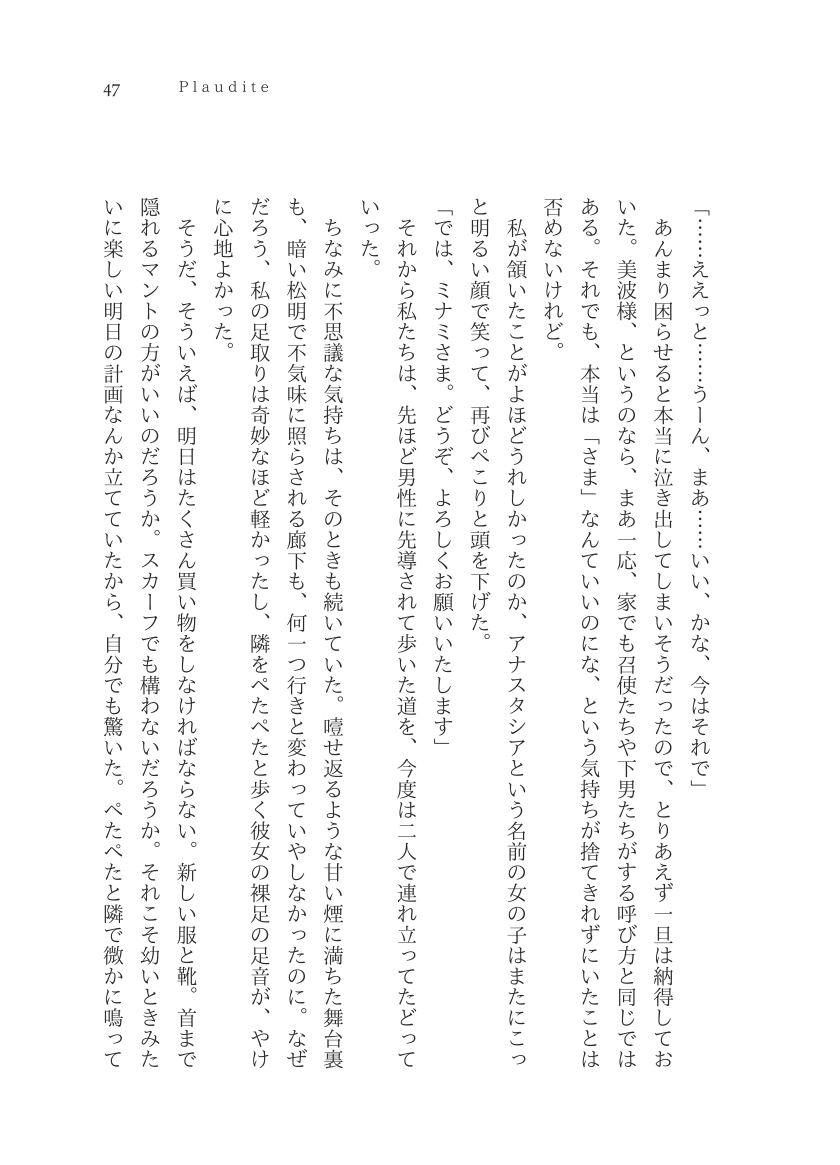 47
Plaudite
「……ええっと……うーん、まあ……いい、かな、今はそれで」
あんまり困らせると本当に泣き出してしまいそうだったので、とりあえず一旦は納得してお
いた。美波様、というのなら、まあ一応、家でも召使たちや下男たちがする呼び方と同じでは
ある。それでも、本当は「さま」なんていいのにな、という気持ちが捨てきれずにいたことは
否めないけれど。
私が頷いたことがよほどうれしかったのか、アナスタシアという名前の女の子はまたにこっ
と明るい顔で笑って、再びぺこりと頭を下げた。
「では、ミナミさま。どうぞ、よろしくお願いいたします」
それから私たちは、先ほど男性に先導されて歩いた道を、今度は二人で連れ立ってたどって
いった。
ちなみに不思議な気持ちは、そのときも続いていた。噎せ返るような甘い煙に満ちた舞台裏
も、暗い松明で不気味に照らされる廊下も、何一つ行きと変わっていやしなかったのに。なぜ
だろう、私の足取りは奇妙なほど軽かったし、隣をぺたぺたと歩く彼女の裸足の足音が、やけ
に心地よかった。
そうだ、そういえば、明日はたくさん買い物をしなければならない。新しい服と靴。首まで
隠れるマントの方がいいのだろうか。スカーフでも構わないだろうか。それこそ幼いときみた
いに楽しい明日の計画なんか立てていたから、自分でも驚いた。ぺたぺたと隣で微かに鳴って